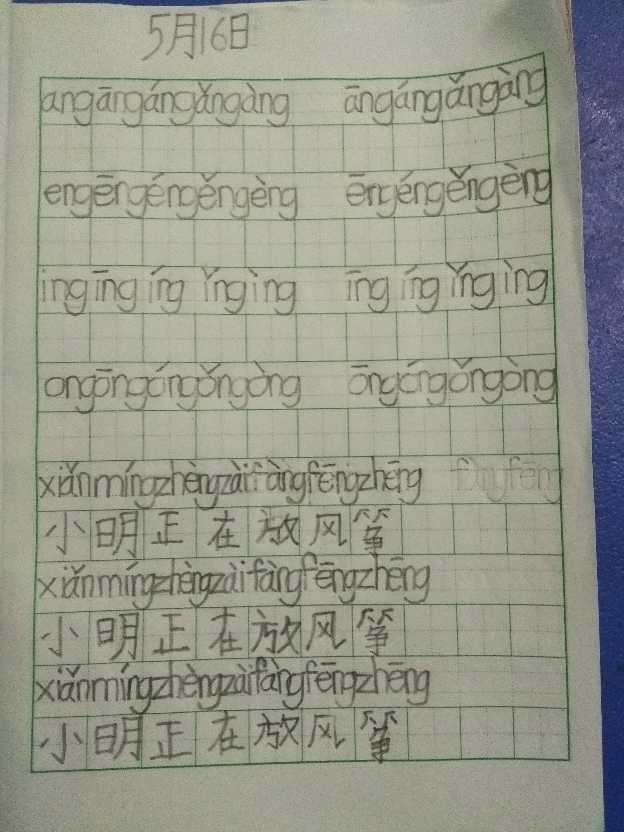 5月16日
angāngángǎngàng āngángǎngàng
engēngéngěngèng ēngéngěngèng
ingīngíngǐngìng īngíngǐngìng
ongōngóngǒngòng ōngóngǒngòng
xiǎnmíngzhèngzàifàngfēngzhēng fàngfēng
小明正在放风筝
xiǎnmíngzhèngzàifàngfēngzhēng
小明正在放风筝
xiǎnmíngzhèngzàifàngfēngzhēng
小明正在放风筝